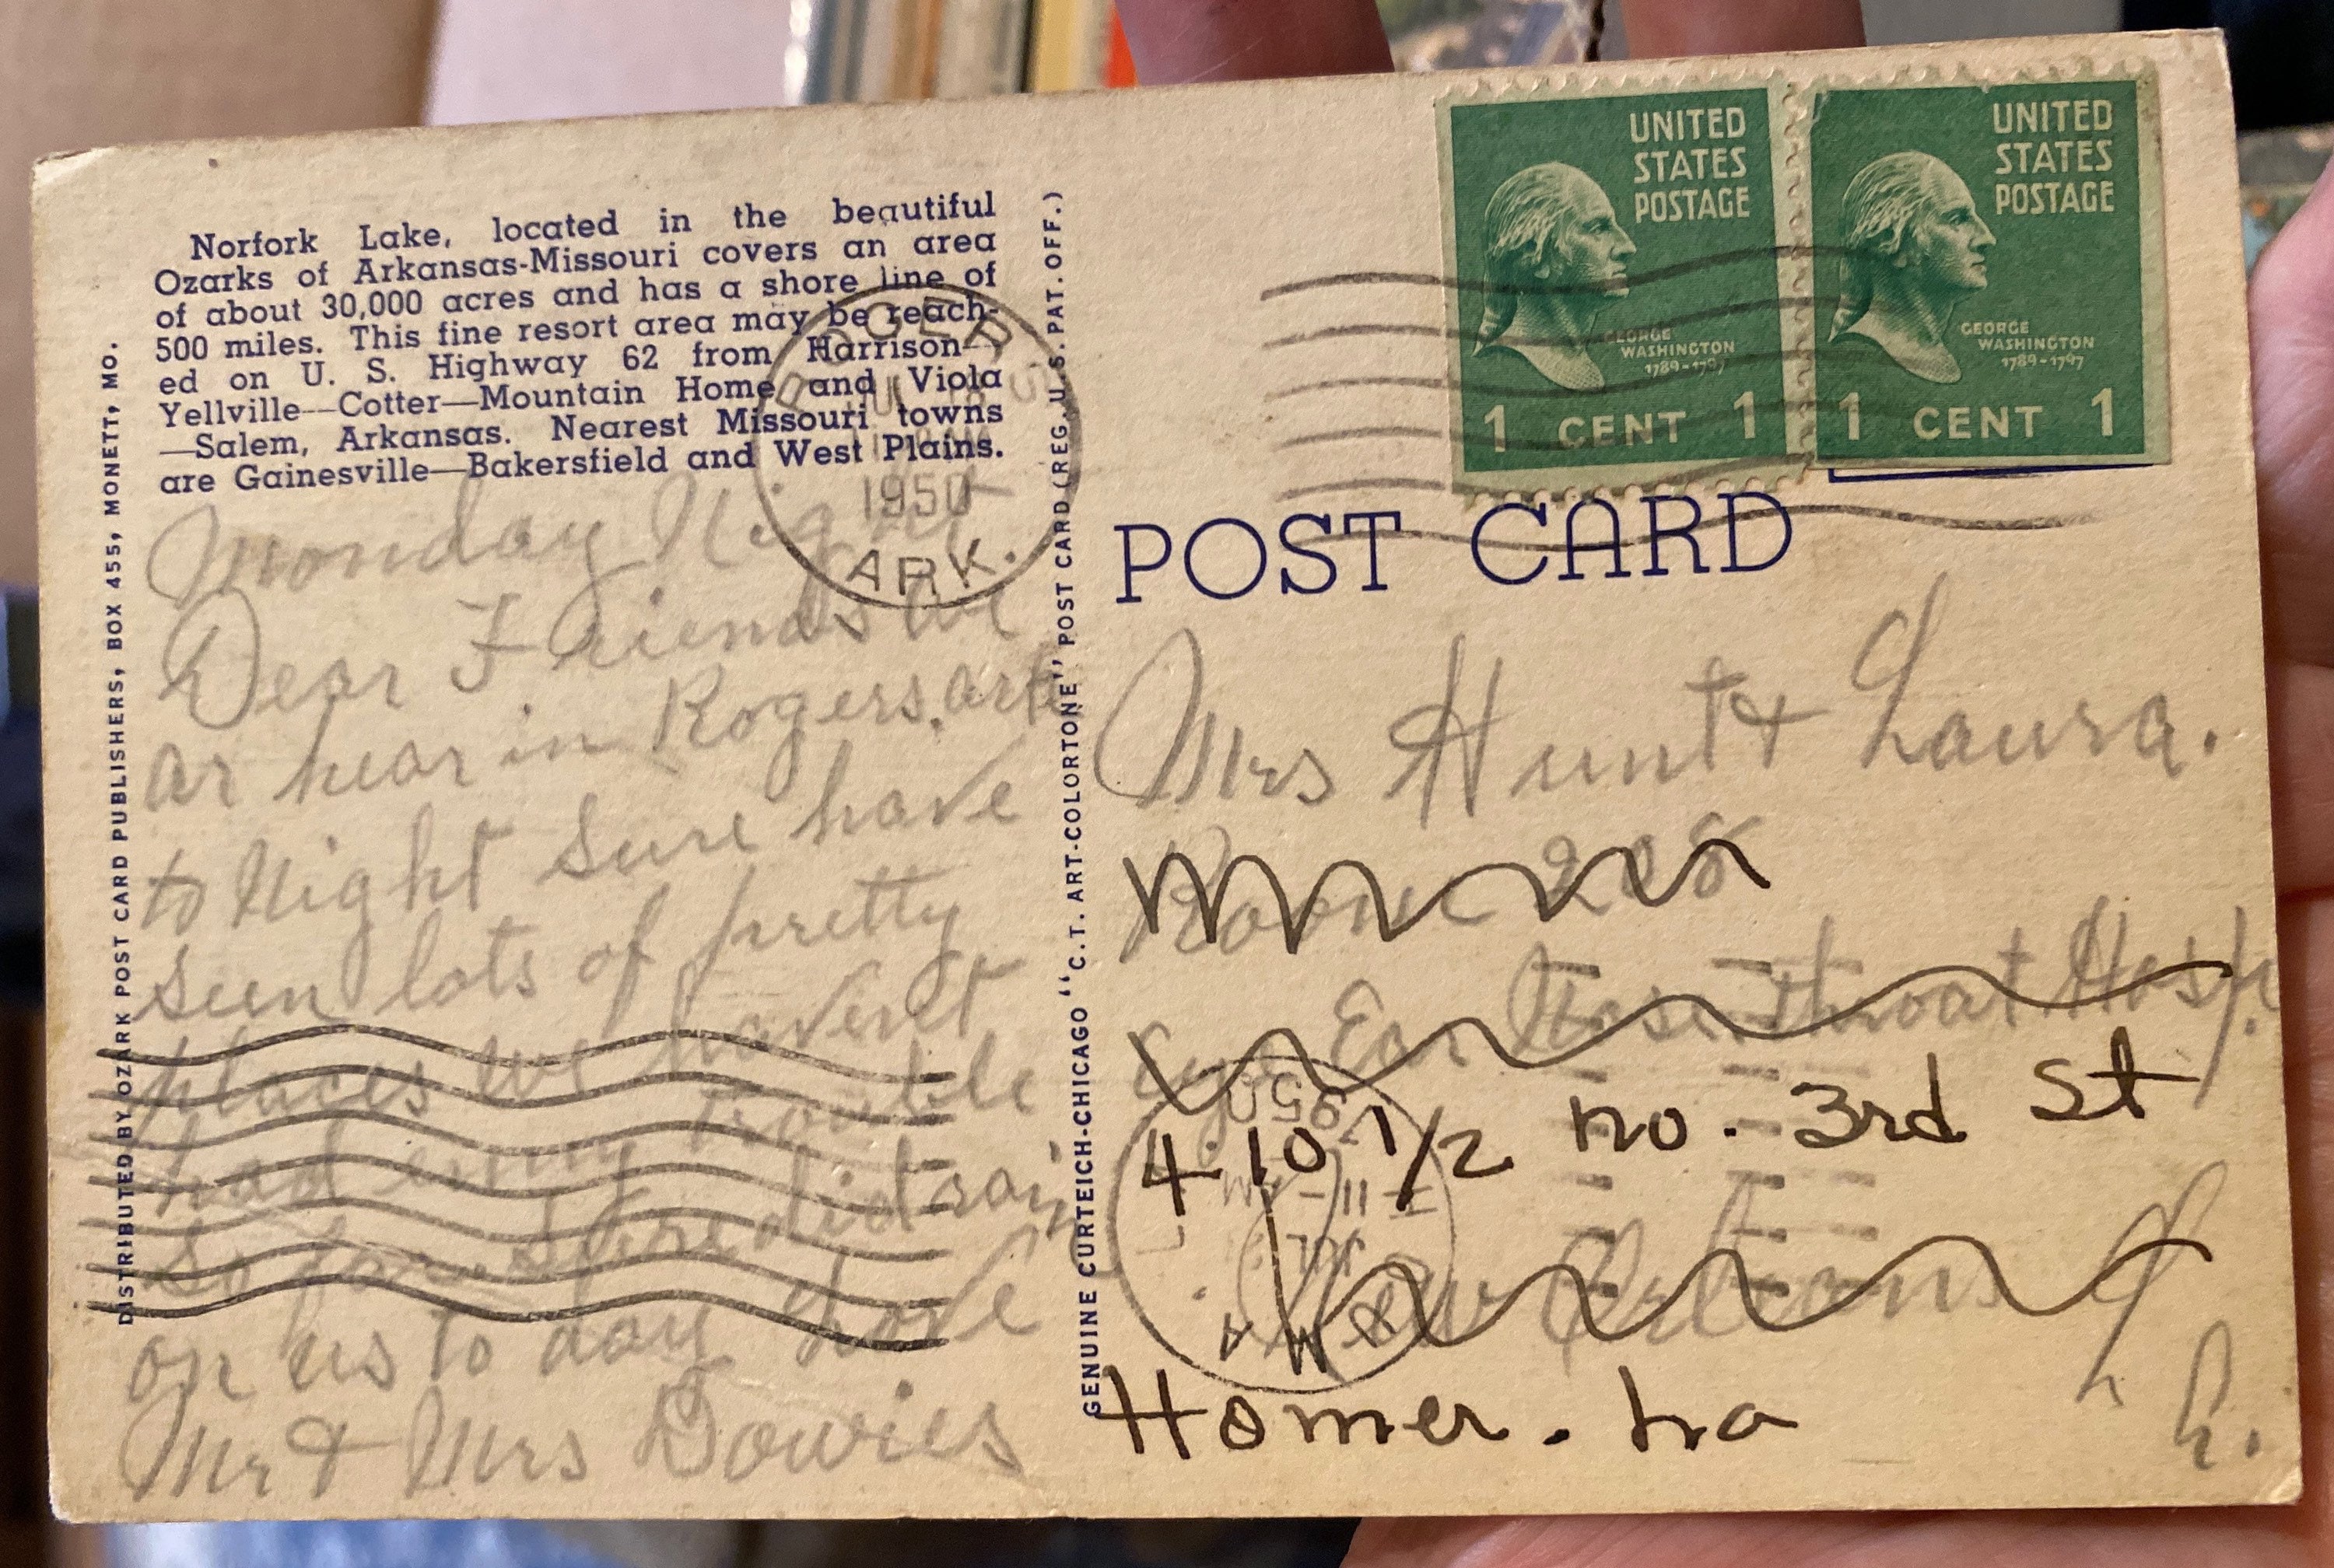 Norfork Lake, located in the beautiful
Ozarks of Arkansas-Missouri covers an area
of about 30,000 acres and has a shore line of
500 miles. This fine resort area may be reach-
ed on U. S. Highway 62 from Harrison—
Yellville—Cotter—Mountain Home and Viola
—Salem, Arkansas. Nearest Missouri towns
are Gainesville—Bakersfield and West Plains.
DISTRIBUTED BY OZARK POST CARD PUBLISHERS, BOX 455, MONETT, MO.
ROGERS
JUL 18
1950
ARK.
Monday Night
Dear Friends we
ar hear in Rogers, ark
to Night Sure have
seen lots of pretty
places we havent
had enny trouble
so far. Sure did rain
on us to day love
Mr & Mrs Bowies
GENUINE CURTEICH-CHICAGO "C.T. ART-COLORTONE" POST CARD (REG. U. S. PAT. OFF.)
UNITED
STATES
POSTAGE
GEORGE
WASHINGTON
1789-1797
1 CENT 1
UNITED
STATES
POSTAGE
GEORGE
WASHINGTON
1789-1797
1 CENT 1
POST CARD
Mrs Hunt & Laura.
Room 208
Eye Ear Nose Throat Hosp.
410 1/2 no. 3rd St
New Orleans
Homer. La